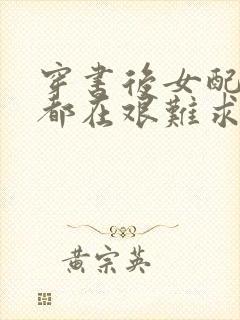 穿書後女配
都在艱難求
黃宗英